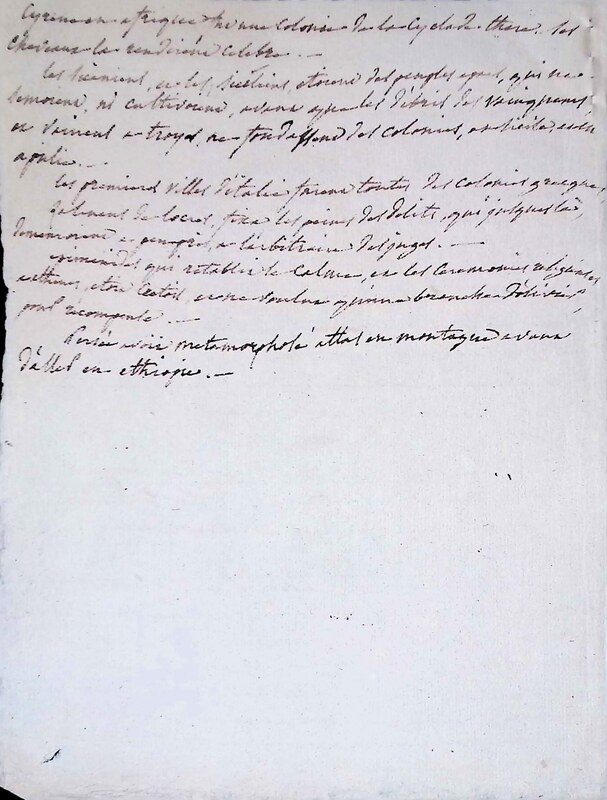 Cyrene en afrique fut une colonie de la Cyclade there. Ses
chevaux la rendirent celebre. —
les et les étoient des peuples epars, qui ne
semoient, ni cultivoient, avant que les débris des vainqueurs,
et vaincus a troyes, ne fondassent des colonies, en sicile, et en
apulie. —
les premieres villes d'italie furent toutes des colonies grecques,
de locres, fixa les peines des delits, qui jusques là,
a l'arbitraire des juges. —
qui retablit le calme, et les ceremonies religieuses
athenes, et en n'en voulut qu'une branche d'olivier,
pour recompense —
Persée avoit metamorphosé atlas en montagne avant
d'aller en ethiopie. —